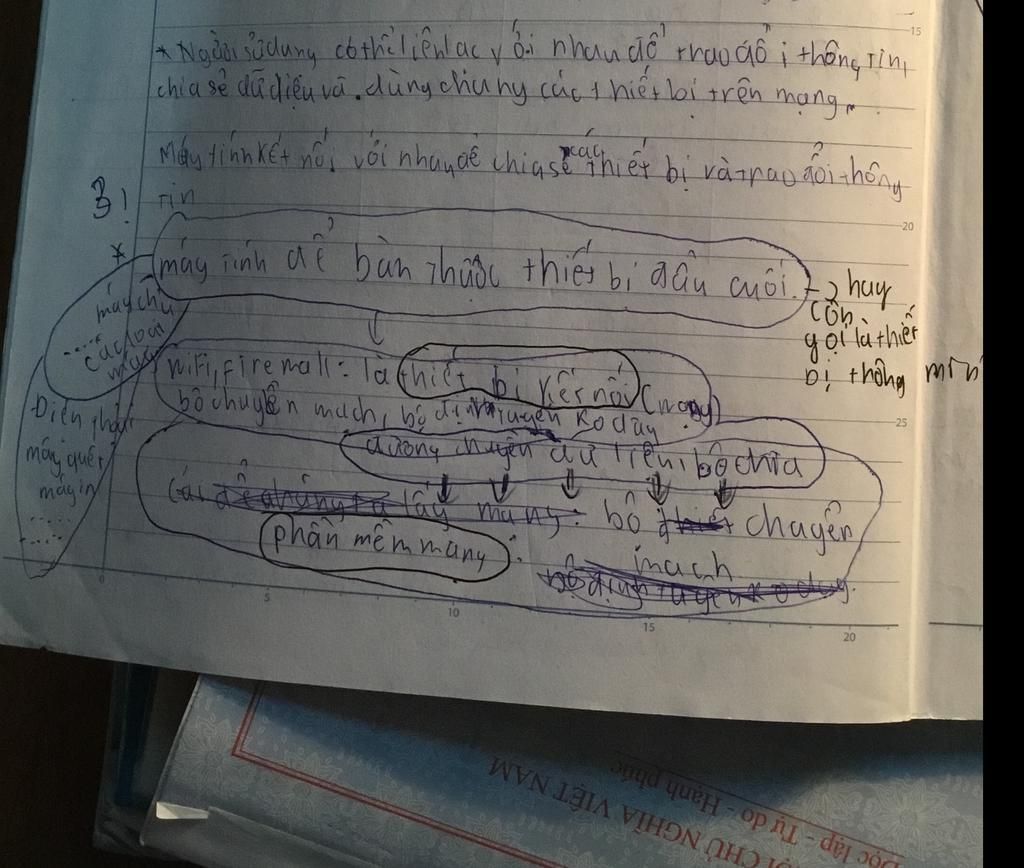 * Người sử dụng có thể liên lạc với nhau để trao đổi thông tin,
chia sẻ dữ liệu và dùng chung các thiết bị trên mạng.
Máy tính kết nối với nhau để chia sẻ các thiết bị và trao đổi thông
tin
3!
*
máy tính để bàn thuộc thiết bị đầu cuối. → hay
còn
gọi là thiết
bị thông min
máy chủ
.....
các loại
máy
wiFi, firewall: là thiết bị kết nối (mạng)
bộ chuyển mạch, bộ định tuyến ko dây
đường truyền dữ liệu, bộ chia
Điện thoại
máy quét
máy in
.....
Cái lấy mạng: bộ chuyển
mạch
phần mềm mạng:
bộ định tuyến ko dây.
15
20
25
0
5
10
15
20
I CHỦ NGHĨA VIỆT NAM
Độc lập - Tự do - Hạnh phúc